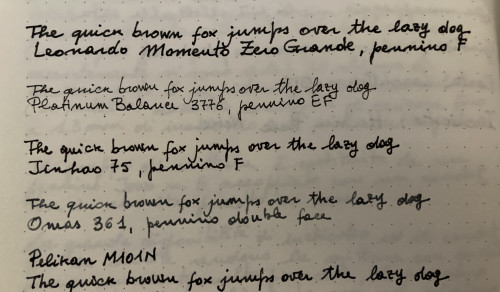 The quick brown fox jumps over the lazy dog
Leonardo Momento Zero Grande, pennino F
The quick brown fox jumps over the lazy dog
Platinum Balance 3776, pennino EF
The quick brown fox jumps over the lazy dog
Jinhao 75, pennino F
The quick brown fox jumps over the lazy dog
Omas 361, pennino double face
Pelikan M101N
The quick brown fox jumps over the lazy dog